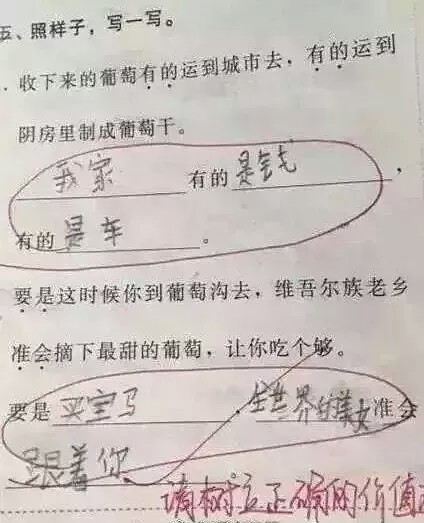 五、照样子，写一写。
. 收下来的葡萄有的运到城市去，有的运到
阴房里制成葡萄干。
我家有的是钱，
有的是车。
要是这时候你到葡萄沟去，维吾尔族老乡
准会摘下最甜的葡萄，让你吃个够。
要是买宝马，全世界的美女准会
跟着你
请树立正确的价值